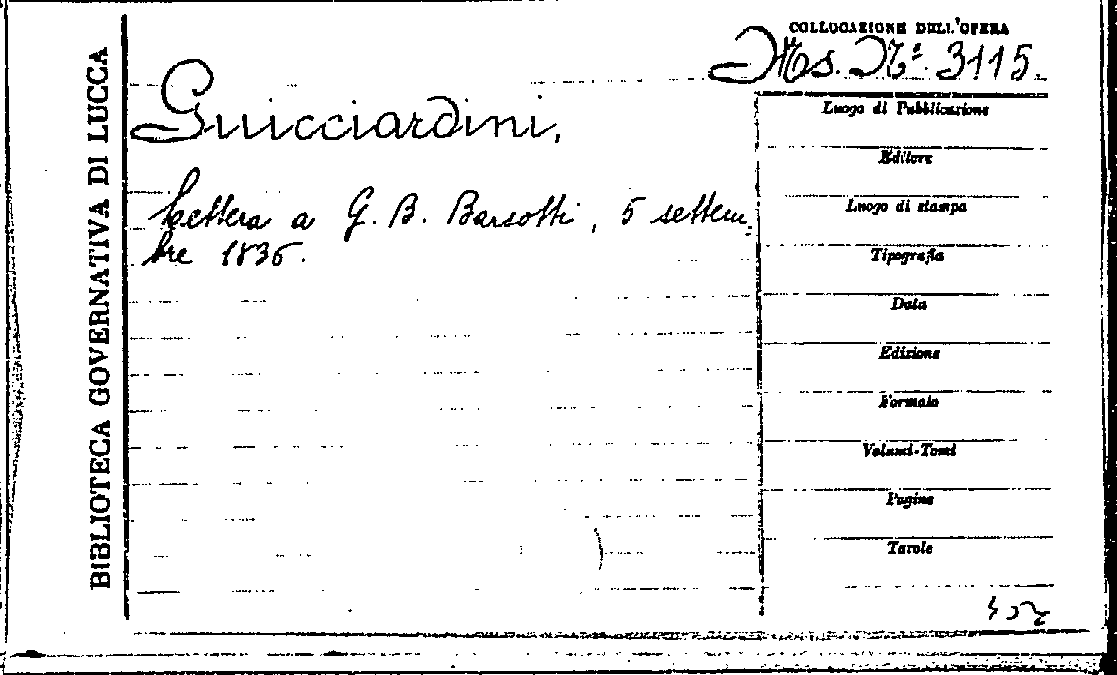 BIBLIOTECA GOVERNATIVA DI LUCCA
COLLOCAZIONE DELL'OPERA
Ms. N.º 3115.
Guicciardini,
Lettera a G. B. Barsotti, 5 settem-
bre 1836.
Luogo di Pubblicazione
Editore
Luogo di stampa
Tipografia
Data
Edizione
Formato
Volumi-Tomi
Pagine
Tavole